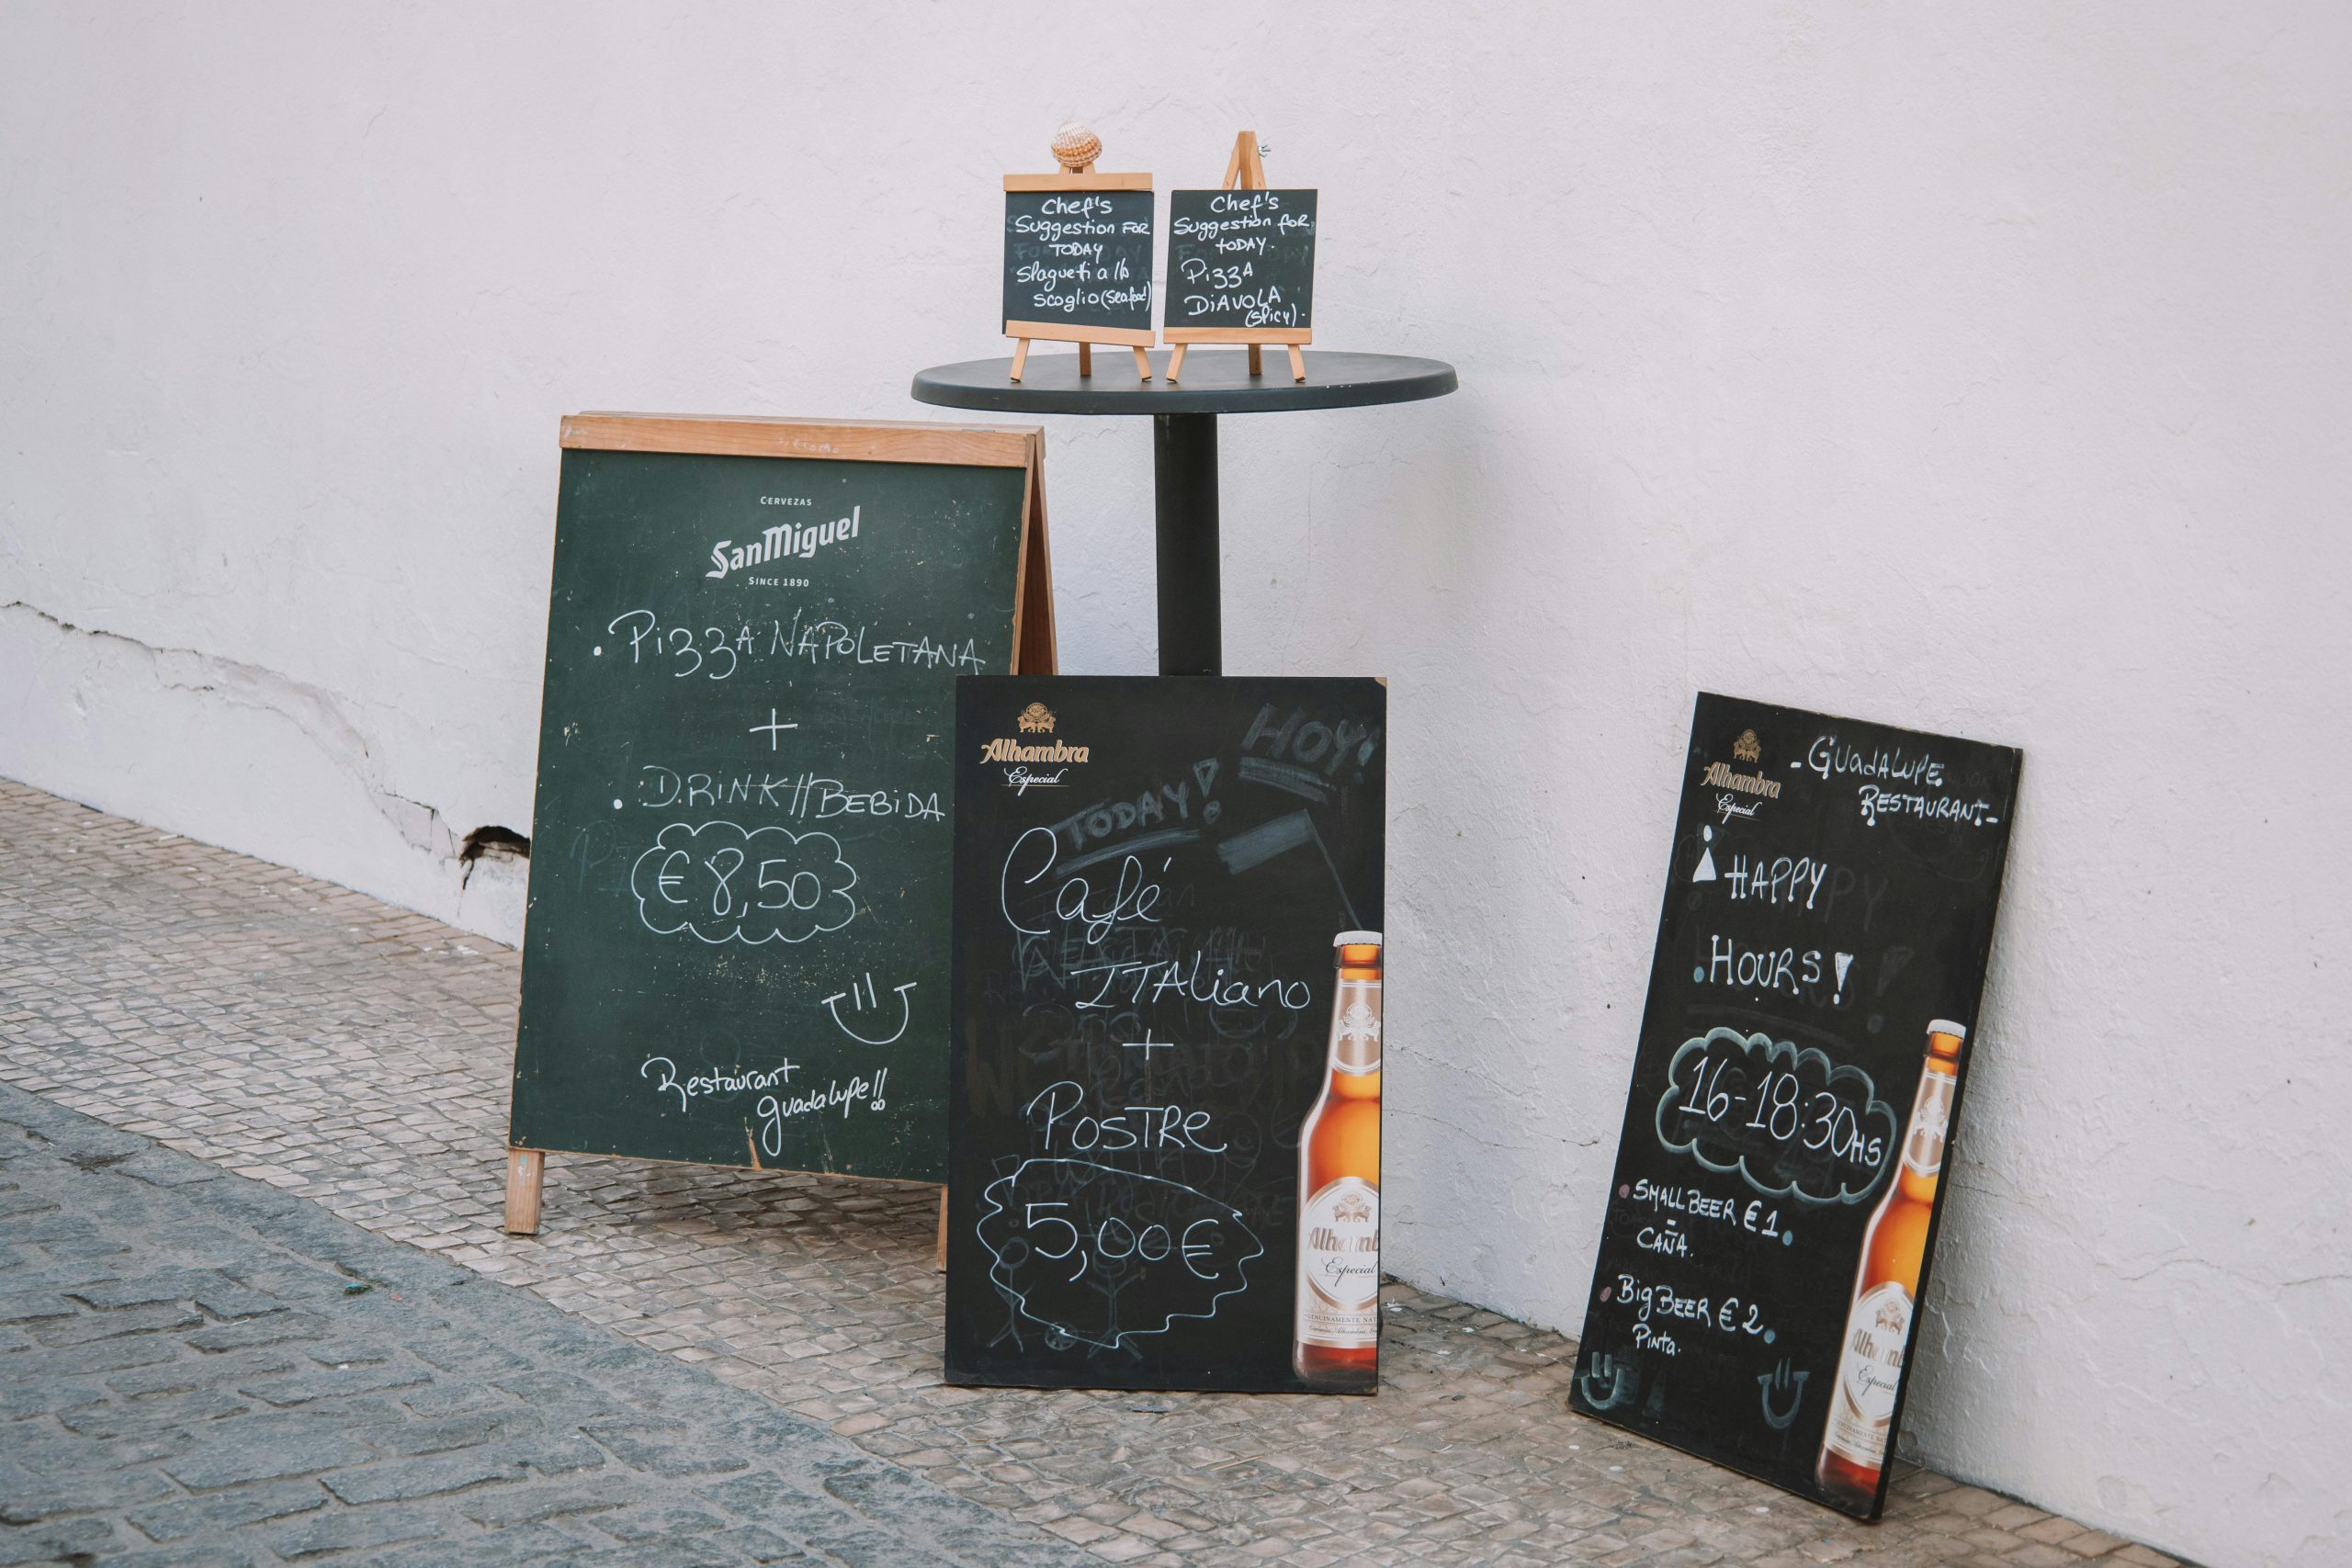 Chef's
Suggestion FOR
TODAY
Slagueti a lo
scoglio (seafood)
Chef's
Suggestion for
TODAY.
Pizza
DiAVOLA
(spicy).
CERVEZAS
SanMiguel
SINCE 1890
. Pizza NAPOLETANA
+
. DRINK//BEBiDA
€8,50
Restaurant
guadalupe!!
Alhambra
Especial
HOY!
TODAY!
Café
ITALiano
+
POSTRe
5,00€
Alhambra
Especial
Alhambra
Especial
- GUadALUPE
RESTAURANT-
HAPPY
HOURS!
16-18:30HS
SMALL BEER €1.
CAÑA.
Big BEER €2.
Pinta.
Especial